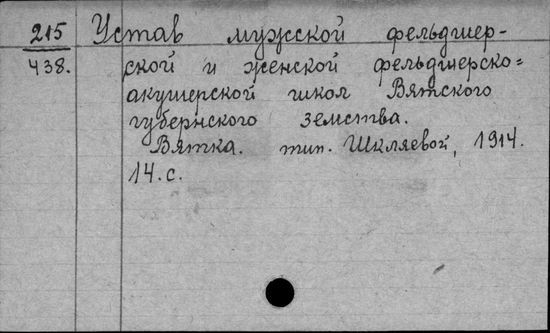 215 Устав мужской фельдшер-
438. ской и женской фельдшерско=
акушерской школ Вятского
губернского земства.
Вятка. тип. Шкляевой, 1914.
14. с.